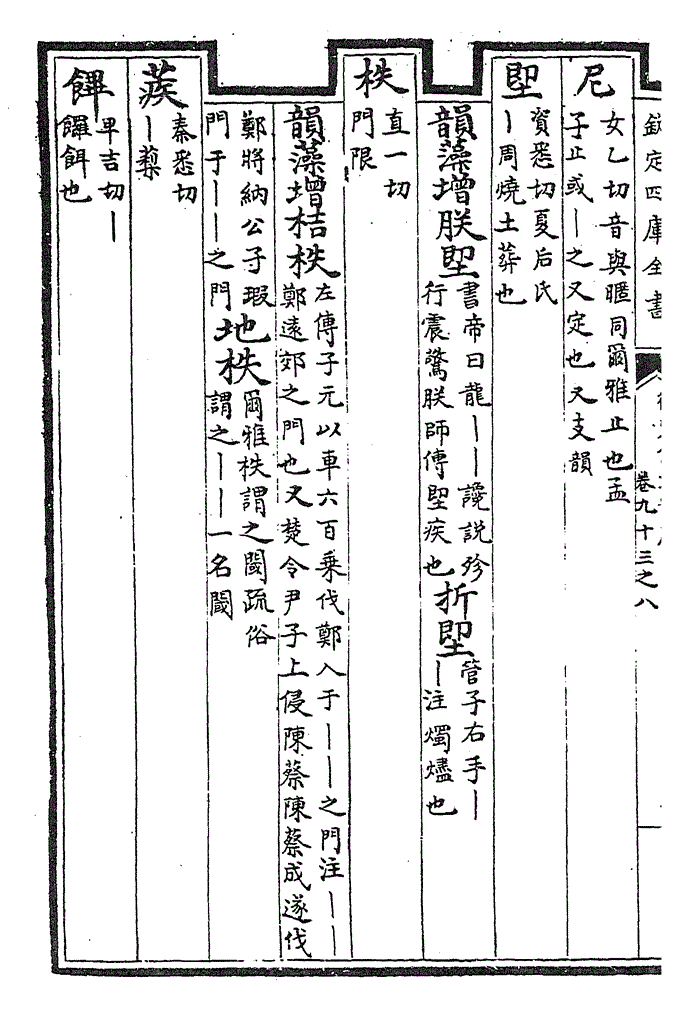 欽定四庫全書
卷九十三之八
尼
女乙切音與暱同爾雅止也孟
子止或丨之又定也又支韻
堲
資悉切夏后氏
丨周燒土葬也
韻藻增朕堲
書帝曰龍丨丨讒説殄
行震驚朕師傳堲疾也
折堲
管子右手丨
丨注燭燼也
柣
直一切
門限
韻藻增桔柣
左傳子元以車六百乗伐鄭入于丨丨之門注丨丨
鄭遠郊之門也又楚令尹子上侵陳蔡陳蔡成遂伐
鄭將納公子瑕
門于丨丨之門
地柣
爾雅柣謂之閾疏俗
謂之丨丨一名閾
蒺
秦悉切
丨蔾
饆
卑吉切丨
饠餌也